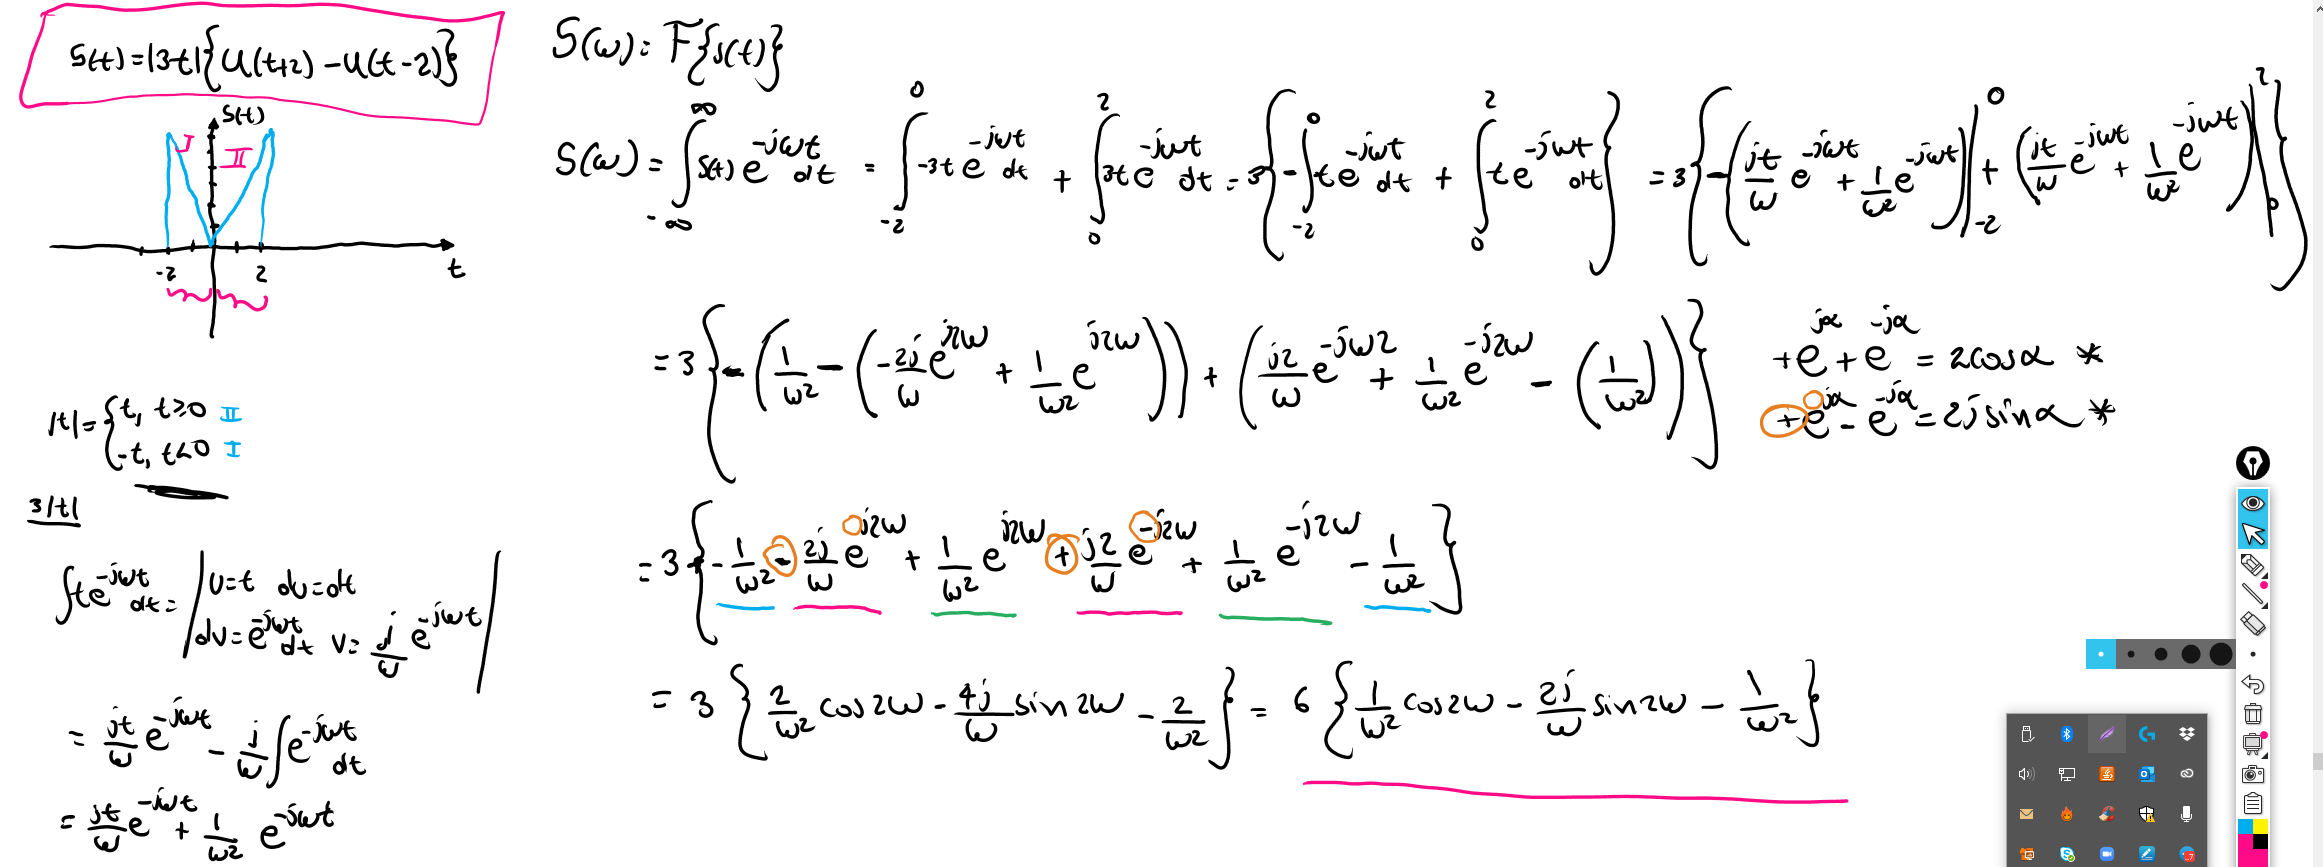 S(t) = |3t| {u(t+2) - u(t-2)}
S(t)
I
II
-2
2
t
|t| = { t, t≥0 II
-t, t<0 I
3|t|
∫ t e^{-jωt} dt = | u=t du=dt
dv = e^{-jωt} dt v = j/ω e^{-jωt} |
= jt/ω e^{-jωt} - j/ω ∫ e^{-jωt} dt
= jt/ω e^{-jωt} + 1/ω² e^{-jωt}
S(ω) = F{s(t)}
S(ω) = ∫_{-∞}^{∞} s(t) e^{-jωt} dt = ∫_{-2}^{0} -3t e^{-jωt} dt + ∫_{0}^{2} 3t e^{-jωt} dt = 3{ -∫_{-2}^{0} t e^{-jωt} dt + ∫_{0}^{2} t e^{-jωt} dt } = 3{ -(jt/ω e^{-jωt} + 1/ω² e^{-jωt})|_{-2}^{0} + (jt/ω e^{-jωt} + 1/ω² e^{-jωt})|_{0}^{2} }
= 3{ -(1/ω² - (-2j/ω e^{j2ω} + 1/ω² e^{j2ω})) + (j2/ω e^{-jω2} + 1/ω² e^{-j2ω} - (1/ω²)) }
+e^{jα} + e^{-jα} = 2cosα *
+e^{jα} - e^{-jα} = 2j sinα *
= 3{ -1/ω² - 2j/ω e^{j2ω} + 1/ω² e^{j2ω} + j2/ω e^{-j2ω} + 1/ω² e^{-j2ω} - 1/ω² }
= 3 { 2/ω² cos2ω - 4j/ω sin2ω - 2/ω² } = 6 { 1/ω² cos2ω - 2j/ω sin2ω - 1/ω² }